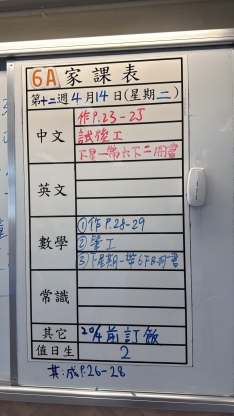 6A 家課表
第十二週4月14日(星期二)
中文
作P.23-25
試後工
下星一帶六下二冊書
英文
數學
①作P.28-29
②筆工
③下星期一帶6下B冊書
常識
其它
20/4前訂飯
值日生
2
其:成P.26-28